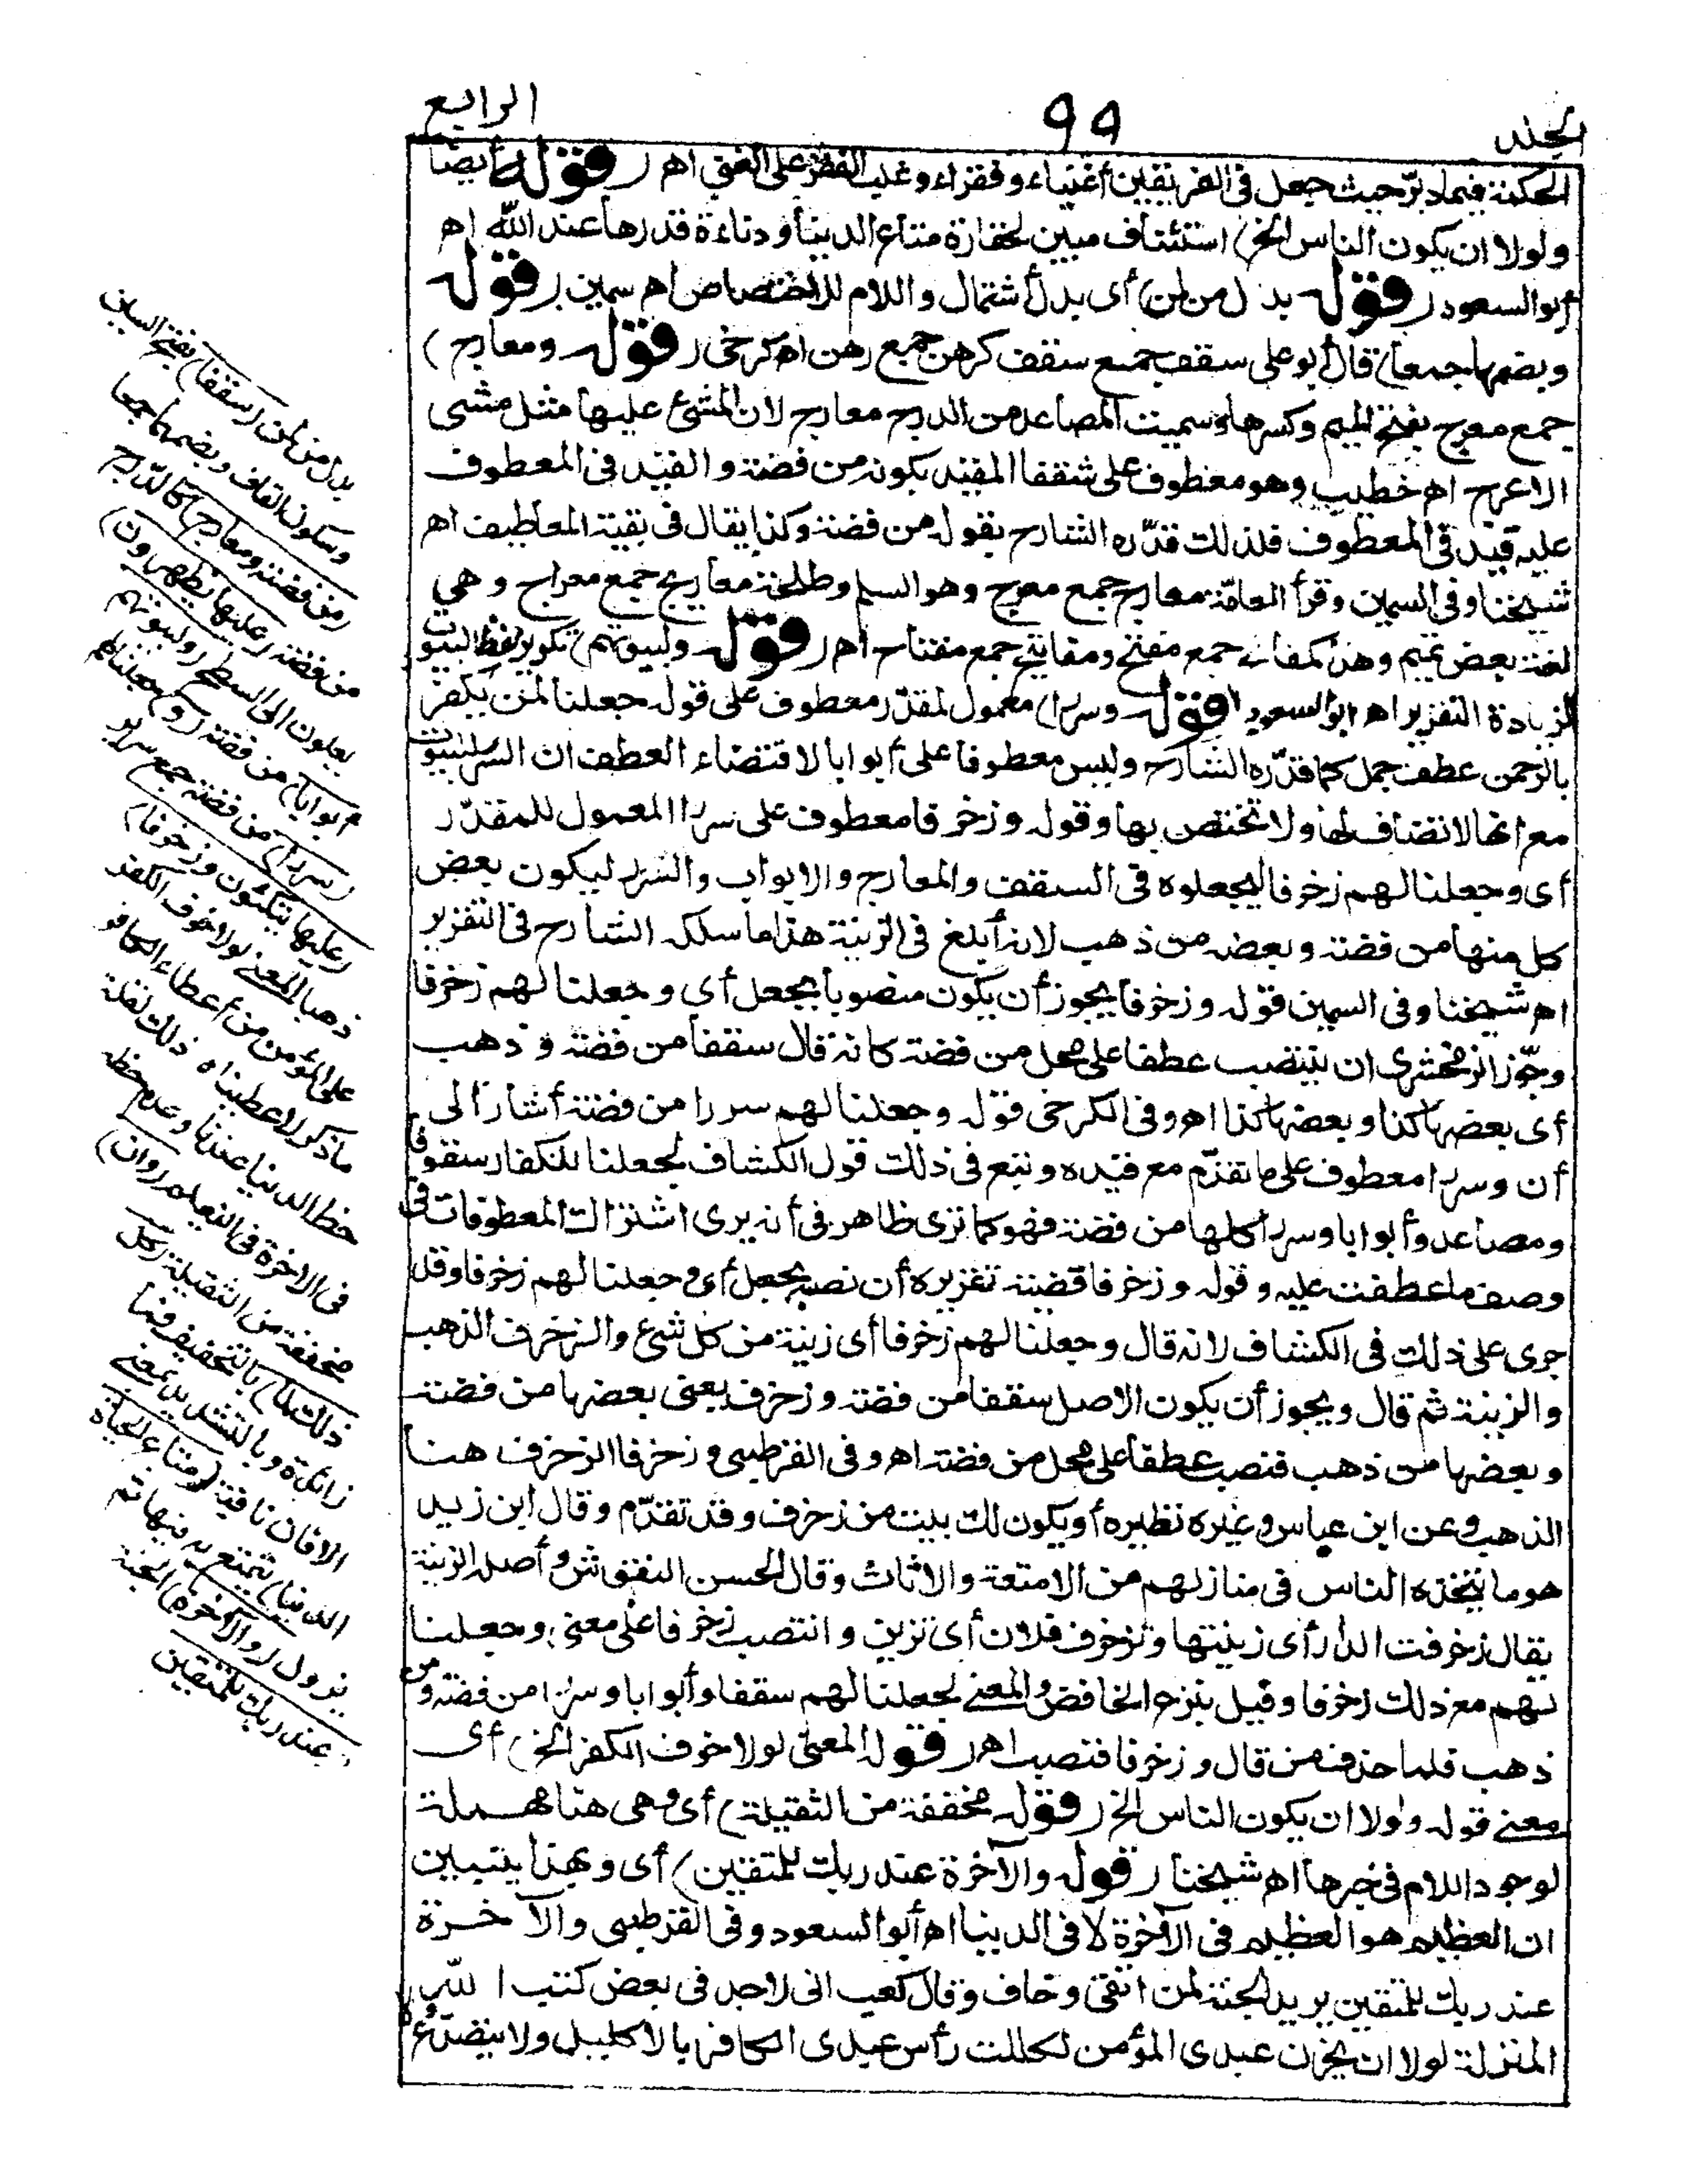 الجلد
99
الرابع
الحكمة فيما دبر حيث جعل فى الفريقين أغنياء وفقراء وغلب الفقر على الغنى اهـ (قوله أيضا
ولولا ان يكون الناس الخ) استئناف مبين لحقارة متاع الدنيا ودناءة قدرها عند الله اهـ
أبو السعود (قوله بدل من لمن) أى بدل أشتمال واللام للاختصاص اهـ سمين (قوله
وبضمهما جمعا) قال أبو على سقف جمع سقف كرهن جمع رهن اهـ كرخى (قوله ومعارج)
جمع معرج بفتح الميم وكسرها وسميت المصاعد من الدرج معارج لان المشى عليها مثل مشى
الاعرج اهـ خطيب وهو معطوف على سقفا المقيد بكونه من فضة والقيد فى المعطوف
عليه قيد فى المعطوف فلذلك قدّره الشارح بقوله من فضة وكذا يقال فى بقية المعاطيف اهـ
شيخنا وفى السمين وقرأ العامّة معارج جمع معرج وهو السلم وطلحة معاريج جمع معراج وهى
لغة بعض تميم وهذا كمفاتح جمع مفتح ومفاتيح جمع مفتاح اهـ (قوله ولبيوتهم) تكرير لفظ البيوت
لزيادة التقرير اهـ ابو السعود (قوله وسررا) معمول لمقدّر معطوف على قوله جعلنا لمن يكفر
بالرحمن عطف جمل كما قدّره الشارح وليس معطوفا على أبوابا لاقتضاء العطف ان السرر للبيوت
مع انها لا تضاف لها ولا تختص بها وقوله وزخرفا معطوف على سررا المعمول للمقدّر
أى وجعلنا لهم زخرفا ليجعلوه فى السقف والمعارج والابواب والسرر ليكون بعض
كل منها من فضة وبعضه من ذهب لانه أبلغ فى الزينة هذا ما سلكه الشارح فى التقرير
اهـ شيخنا وفى السمين قوله وزخرفا يجوز أن يكون منصوبا بجعل أى وجعلنا لهم زخرفا
وجوّز الزمخشرى ان ينتصب عطفا على محل من فضة كانه قال سقفا من فضة وذهب
أى بعضها كذا وبعضها كذا اهـ وفى الكرخى قوله وجعلنا لهم سررا من فضة أشار الى
أن وسررا معطوف على ما تقدّم مع قيده وتبع فى ذلك قول الكشاف لجعلنا للكفار سقوفا
ومصاعد وأبوابا وسررا كلها من فضة فهو كما ترى ظاهر فى أنه يرى اشتراك المعطوفات فى
وصف ما عطفت عليه وقوله وزخرفا قضية تقريره أن نصبه بجعل أى وجعلنا لهم زخرفا وقد
جرى على ذلك فى الكشاف لانه قال وجعلنا لهم زخرفا أى زينة من كل شئ والزخرف الذهب
والزينة ثم قال ويجوز أن يكون الاصل سقفا من فضة وزخرف يعنى بعضها من فضة
وبعضها من ذهب فنصب عطفا على محل من فضة اهـ وفى القرطبى وزخرفا الزخرف هنا
الذهب وعن ابن عباس وغيره نظيره أو يكون لك بيت من زخرف وقد تقدّم وقال ابن زيد
هو ما يتخذه الناس فى منازلهم من الامتعة والاثاث وقال الحسن النقوش وأصله الزينة
يقال زخرفت الدار أى زينتها وتزخرف فلان أى تزين وانتصب زخرفا على معنى وجعلنا
لهم مع ذلك زخرفا وقيل بنزع الخافض والمعنى لجعلنا لهم سقفا وأبوابا وسررا من فضة ومن
ذهب فلما حذف من قال وزخرفا فنصب اهـ (قوله المعنى لولا خوف الكفر الخ) أى
معنى قوله ولولا ان يكون الناس الخ (قوله مخففة من الثقيلة) أى وهى هنا مهملة
لوجود اللام فى خبرها اهـ شيخنا (قوله والآخرة عند ربك للمتقين) أى وبهذا يتبين
ان العظيم هو العظيم فى الآخرة لا فى الدنيا اهـ أبو السعود وفى القرطبى والآخرة
عند ربك للمتقين يريد الجنة لمن اتقى وخاف وقال كعب انى لاجد فى بعض كتب الله
المنزلة لولا ان يحزن عبدى المؤمن لكللت رأس عبدى الكافر بالاكليل ولا يتصدّع
بدل من لمن (سقفا) بفتح السين
وسكون القاف وبضمهما جمعا
(من فضة ومعارج) كالدرج
من فضة (عليها يظهرون)
يعلون الى السطح (ولبيوتهم
أبوابا) من فضة (و) جعلنا لهم
(سررا) من فضة جمع سرير
(عليها يتكئون وزخرفا)
ذهبا المعنى لولا خوف الكفر
على المؤمن من أعطاء الكافر
ما ذكر لاعطيناه ذلك لقلة
حظ الدنيا عندنا وعدم حظه
فى الآخرة فى النعيم (وان)
مخففة من الثقيلة (كل
ذلك لما) بالتخفيف فما
زائدة وبالتشديد بمعنى
الا فان نافية (متاع الحياة
الدنيا) يتمتع به فيها ثم
يزول (والآخرة) الجنة
(عند ربك للمتقين